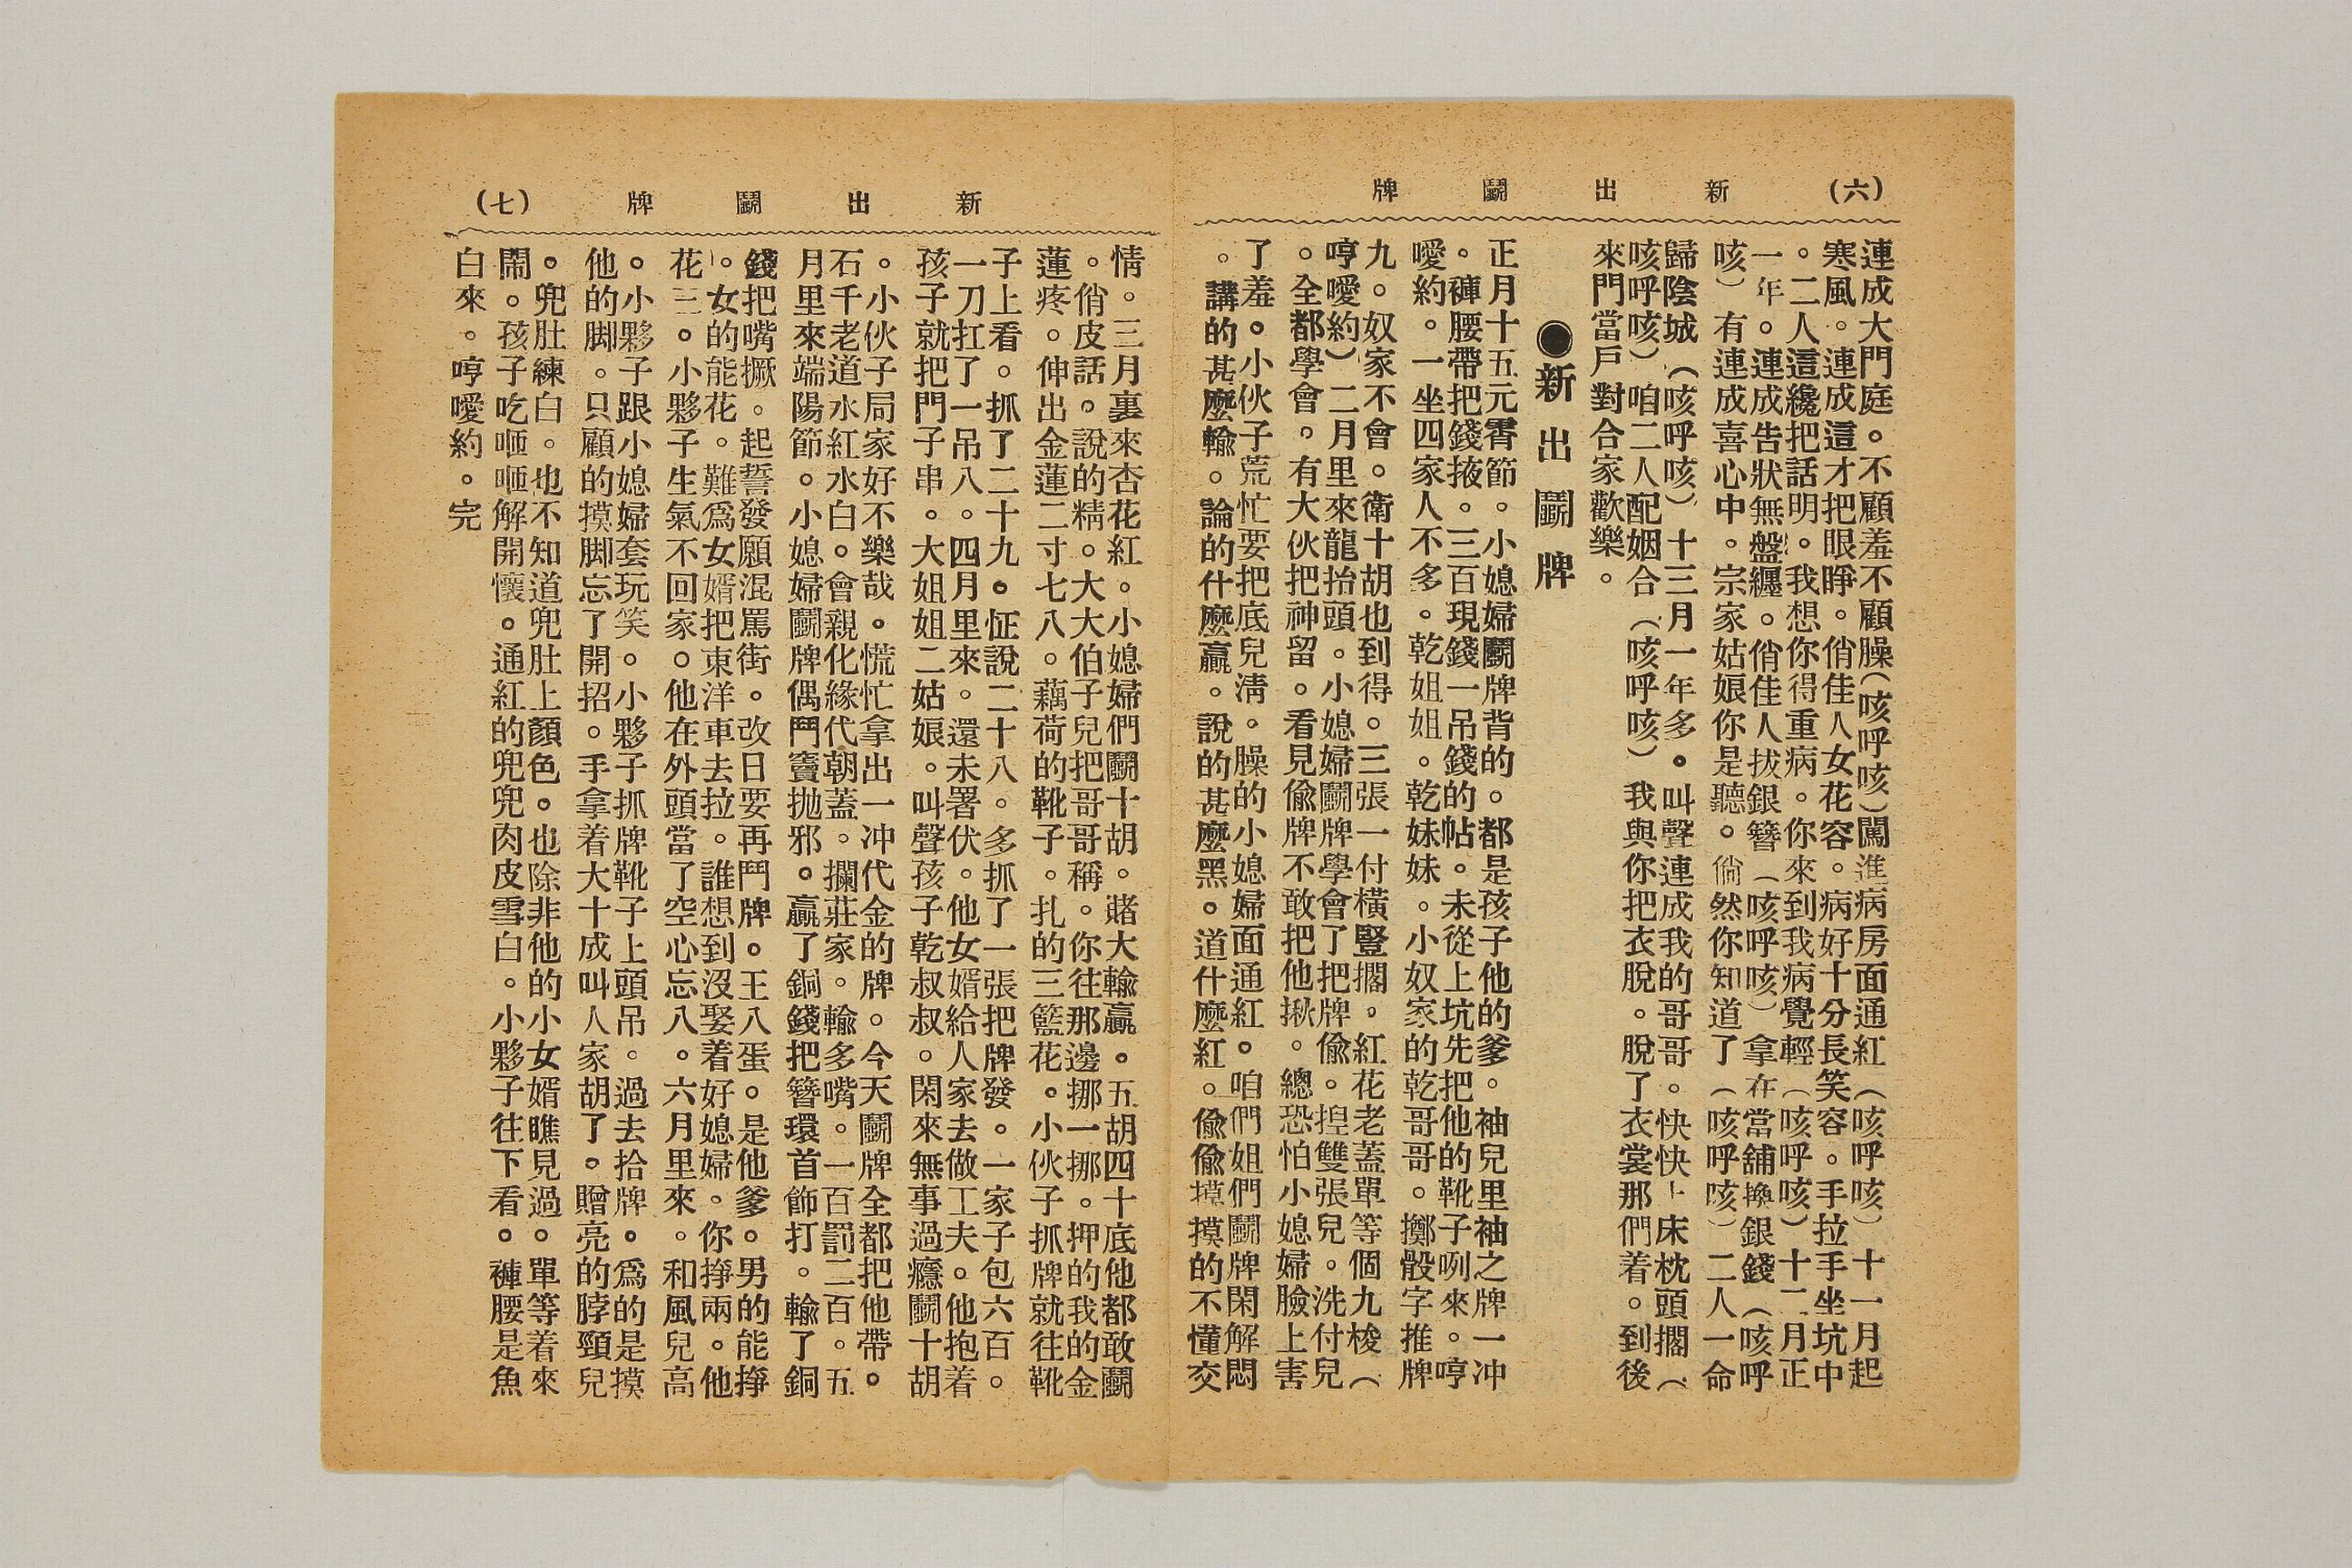 (六)　新出鬭牌
連成大門庭。不顧羞不顧臊（咳呼咳）闖進病房面通紅（咳呼咳）十一月起
寒風。連成這才把眼睜。俏佳人女花容。病好十分長笑容。手拉手坐坑中
。二人這纔把話明。我想你得重病。你來到我病覺輕（咳呼咳）十二月正
一年。連成告狀無盤纏。俏佳人拔銀簪（咳呼咳）拿在當舖換銀錢（咳呼
咳）有連成喜心中。宗家姑娘你是聽。倘然你知道了（咳呼咳）二人一命
歸陰城（咳呼咳）十三月一年多。叫聲連成我的哥哥。快快上床枕頭擱（
咳呼咳）咱二人配姻合（咳呼咳）我與你把衣脫。脫了衣裳那們着。到後
來門當戶對合家歡樂。
●新出鬭牌
正月十五元霄節。小媳婦鬭牌背的。都是孩子他的爹。袖兒里袖之牌一冲
。褲腰帶把錢掖。三百現錢一吊錢的帖。未從上坑先把他的靴子咧來。哼
噯約。一坐四家人不多。乾姐姐。乾妹妹。小奴家的乾哥哥。擲骰字推牌
九。奴家不會。衛十胡也到得。三張一付橫豎擱。紅花老蓋單等個九梭（
哼噯約）二月里來龍抬頭。小媳婦鬭牌學會了把牌偷。揑雙張兒。洗付兒
。全都學會。有大伙把神留。看見偸牌不敢把他揪。總恐怕小媳婦臉上害
了羞。小伙子荒忙要把底兒淸。臊的小媳婦面通紅。咱們姐們鬭牌閑解悶
。講的甚麼輸。論的什麼贏。說的甚麼黑。道什麼紅。偸偸摸摸的不懂交
(七)　新出鬭牌
情。三月裏來杏花紅。小媳婦們鬭十胡。賭大輸贏。五胡四十底他都敢鬭
。俏皮話。說的精。大大伯子兒把哥哥稱。你往那邊挪一挪。押的我的金
蓮疼。伸出金蓮二寸七八。藕荷的靴子。扎的三籃花。小伙子抓牌就往靴
子上看。抓了二十九。怔說二十八。多抓了一張把牌發。一家子包六百。
一刀扛了一吊八。四月里來。還未署伏。他女婿給人家去做工夫。他抱着
孩子就把門子串。大姐姐二姑娘。叫聲孩子乾叔叔。閑來無事過癮鬭十胡
。小伙子局家好不樂哉。慌忙拿出一冲代金的牌。今天鬭牌全都把他帶。
石千老道水紅水白。會親化緣代朝蓋。攔莊家。輸多嘴。一百罰二百。五
月里來端陽節。小媳婦鬭牌偶鬥竇拋邪。贏了銅錢把簪環首飾打。輸了銅
錢把嘴撅。起誓發願混罵街。改日要再鬥牌。王八蛋。是他爹。男的能掙
。女的能花。難爲女婿把東洋車去拉。誰想到沒娶着好媳婦。你掙兩。他
花三。小夥子生氣不回家。他在外頭當了空心忘八。六月里來。和風兒高
。小夥子跟小媳婦套玩笑。小夥子抓牌靴子上頭吊。過去拾牌。爲的是摸
他的脚。只顧的摸脚忘了開招。手拿着大十成叫人家胡了。贈亮的脖頸兒
。兜肚練白。也不知道兜肚上顏色。也除非他的小女婿瞧見過。單等着來
鬧。孩子吃咂咂解開懷。通紅的兜兜肉皮雪白。小夥子往下看。褲腰是魚
白來。哼噯約。完